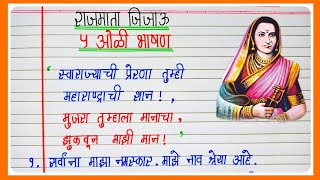 राजमाता जिजाऊ
५ ओळी भाषण
“ स्वराज्याची प्रेरणा तुम्ही
महाराष्ट्राची शान ! ,
मुजरा तुम्हाला मानाचा ,
झुकवून माझी मान ! ”
१. सर्वांना माझा नमस्कार . माझे नाव श्रेया आहे .